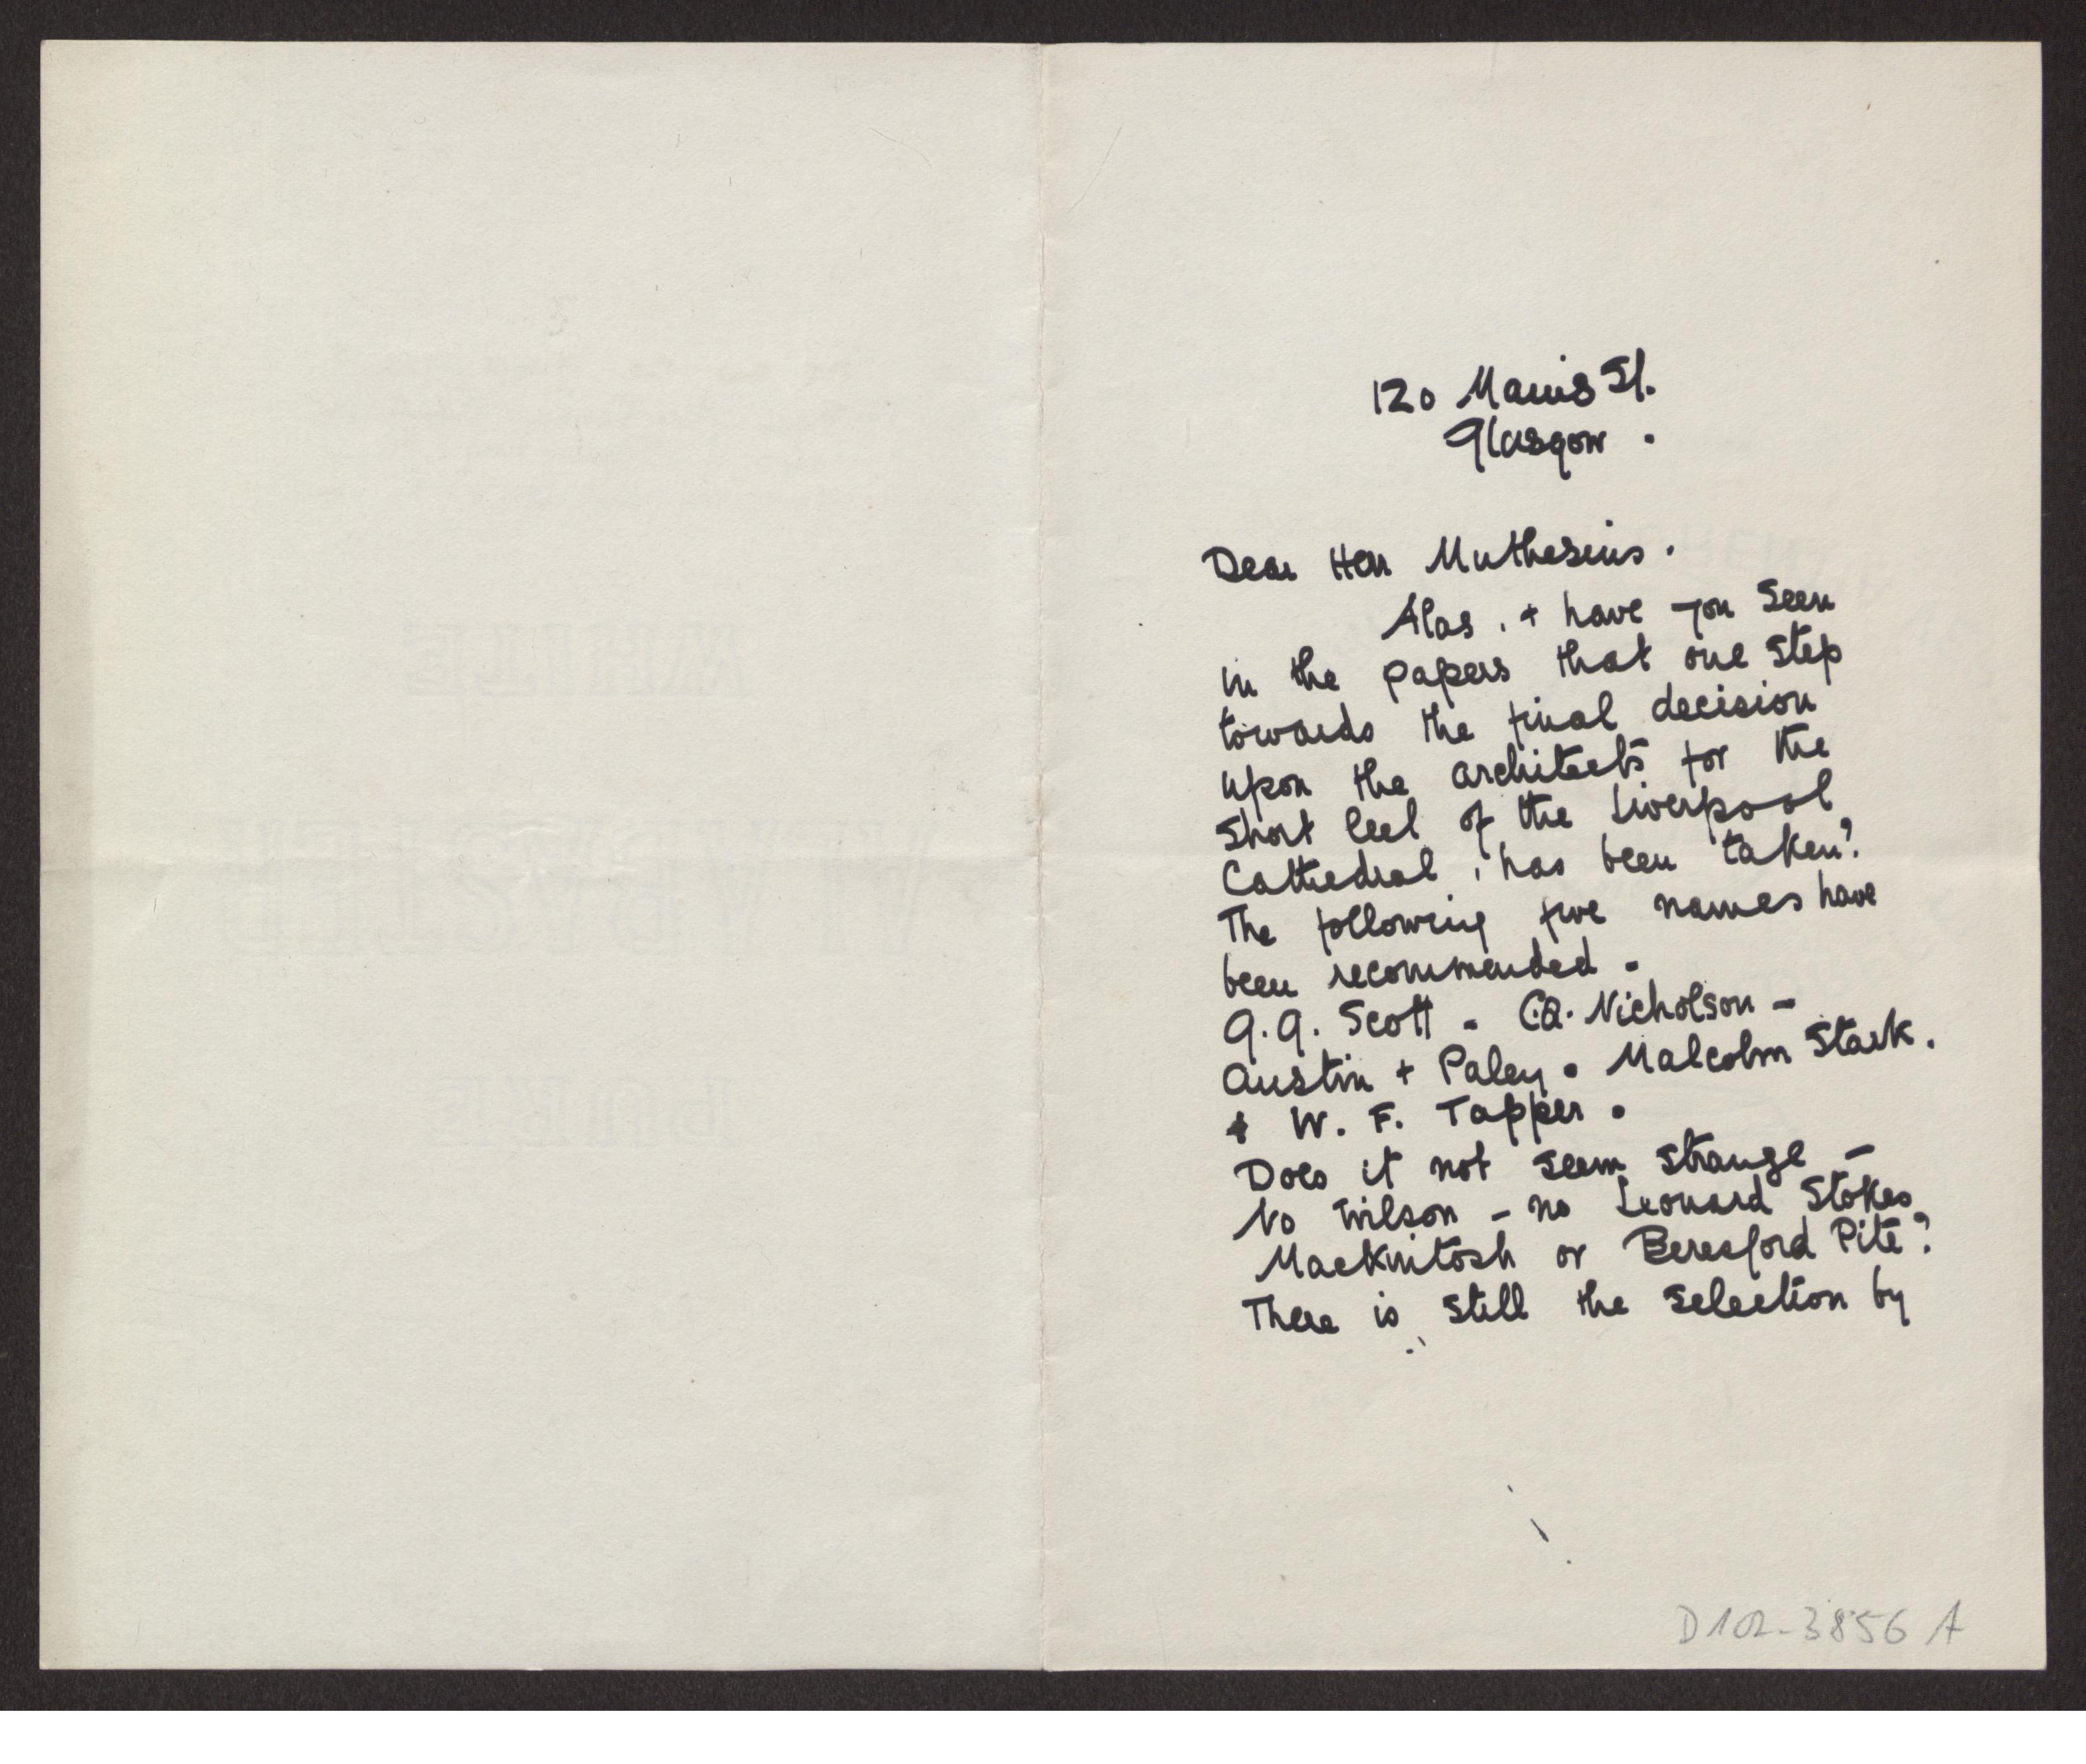 120 Mains St.
Glasgow.
Dear Herr Muthesius.
Alas, + have you seen
in the papers that one step
towards the final decision
upon the architects for the
short leet of the Liverpool
Cathedral, has been taken?
The following five names have
been recommended -
G.G. Scott - C.A. Nicholson -
Austin + Paley. Malcolm Stark.
+ W. F. Tapper.
Does it not seem strange -
No Wilson - no Leonard Stokes
Mackintosh or Beresford Pite?
There is still the selection by
D102-3856 A